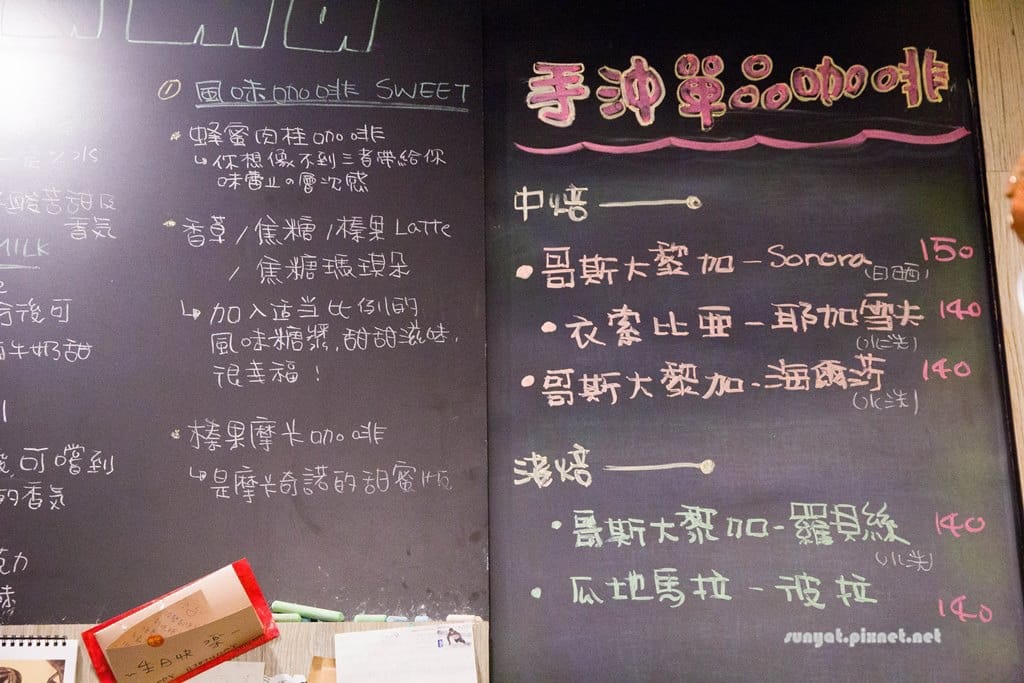 酸苦甜及
香氣
MILK
後可
牛奶甜
可嚐到
的香氣
① 風味咖啡 SWEET
蜂蜜肉桂咖啡
你想像不到三者帶給你
味蕾上の層次感
香草/焦糖/榛果Latte
/焦糖瑪琪朵
加入適当比例的
風味糖漿,甜甜滋味,
很幸福!
榛果摩卡咖啡
是摩卡奇諾的甜蜜版
手沖單品咖啡
中焙
哥斯大黎加-Sonora 150
(日晒)
衣索比亜-耶加雪夫 140
(水洗)
哥斯大黎加-海爾莎 140
(水洗)
淺焙
哥斯大黎加-羅貝絲 140
(水洗)
瓜地馬拉-波拉 140
生日快樂
sunyat.pixnet.net